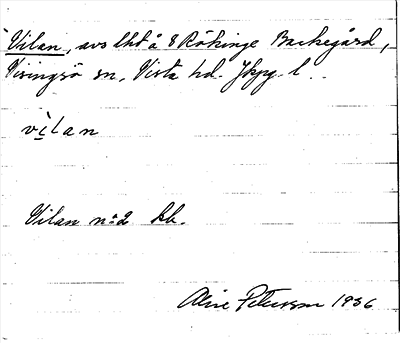 Vilan, avs lht å 8 Rökinge Backegård,
Visingsö sn, Vista hd. Jkpg. l.
vilan
Vilan n:2 kb.
Petersson 1936